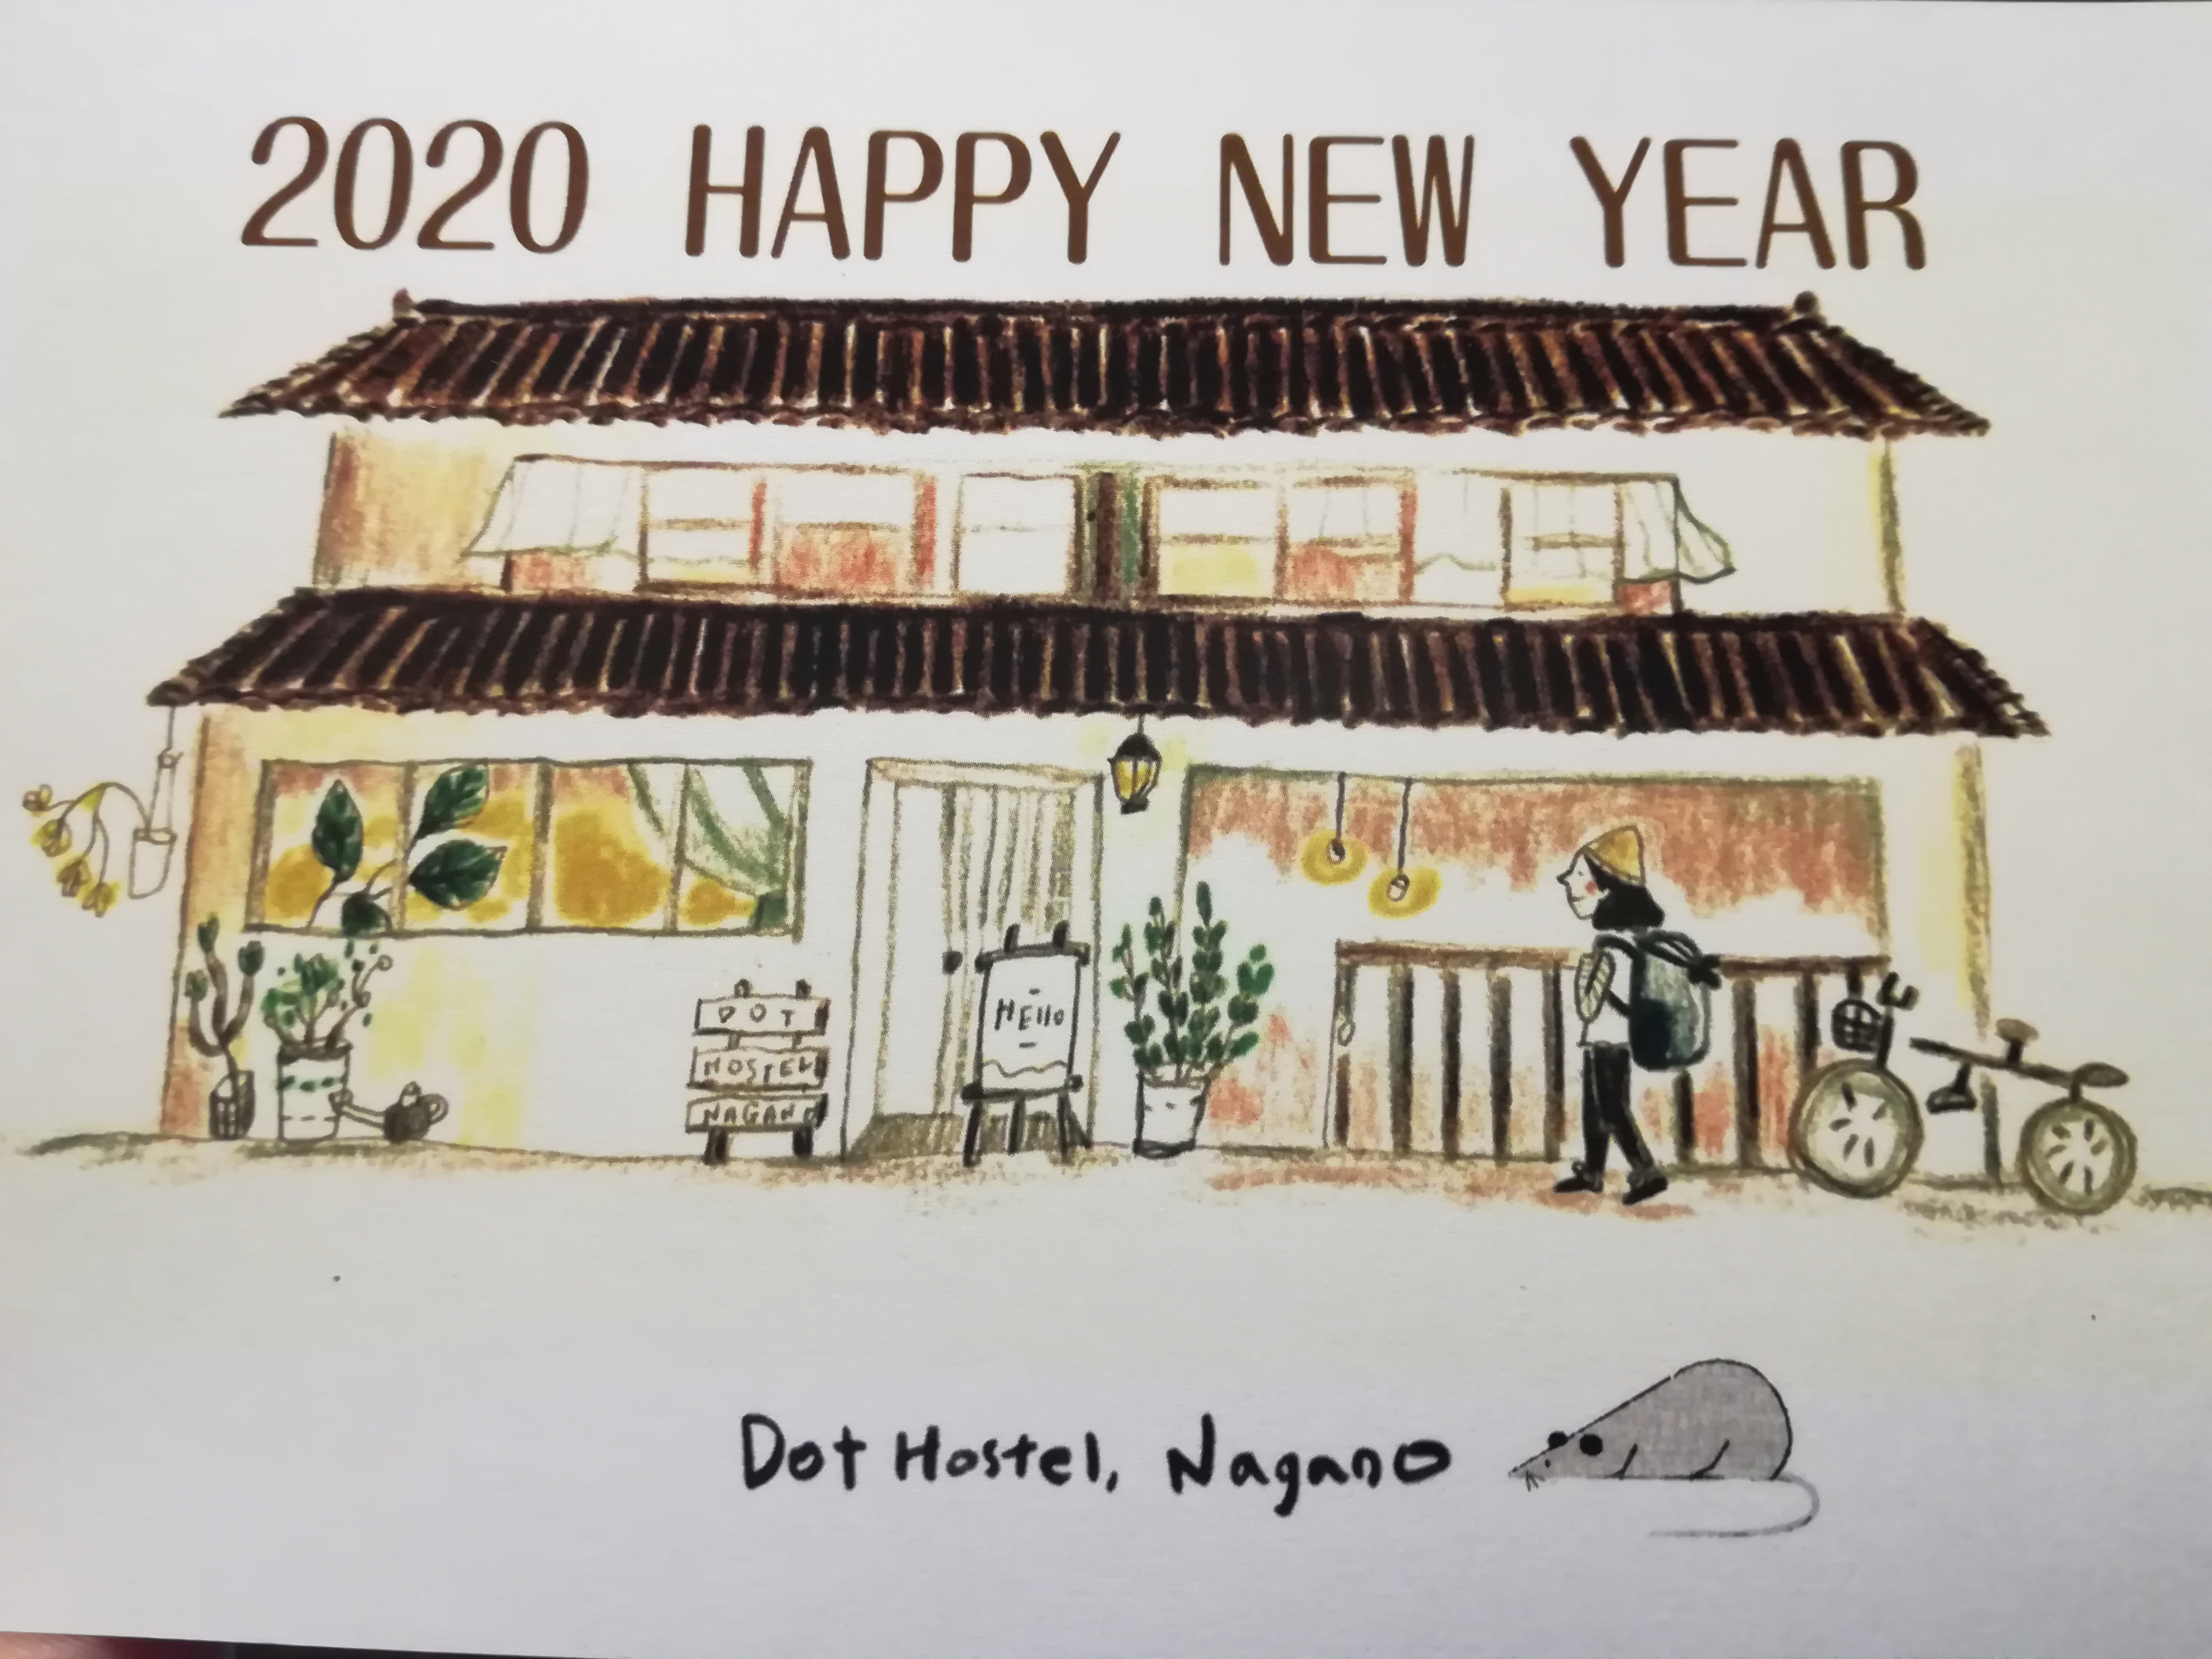 2020 HAPPY NEW YEAR
DOT
HOSTEL
NAGANO
- HEllo -
Dot Hostel, Nagano